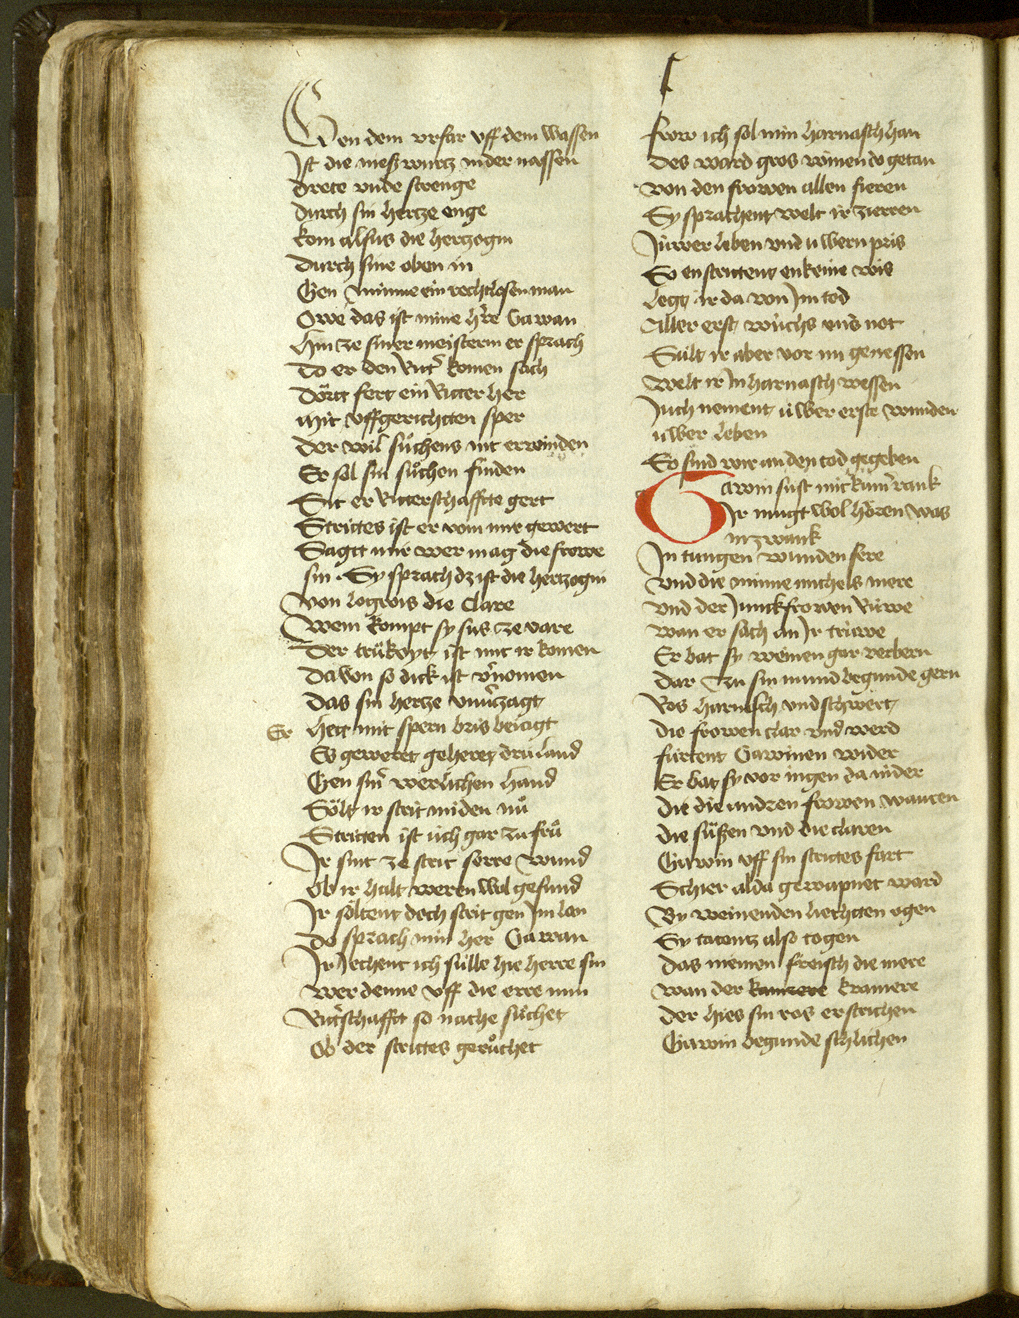 Gen dem vrfar vff dem wassen
Ist die nieß wurtz in der nassen
Drete vnde strenge
Durch sin hertze enge
kom alsus die hertzogin
Durch sine oben in
Gen minne ein rechtlosen man
Owe das ist mine hre Gawan
Hin ze siner meisterin er sprach
Do er den Ritr komen sach
Dört fert ein Ritter her
Mit vffgerichtten sper
Der wil sůchens nit erwinden
Er sol sin sůchen finden
Sit er Ritterschaffte gert
Strittes ist er von mir gewert
Sagtt mir wer mag die frowe
sin . Sy sprach dz ist die hertzogin
Von logrois die Clare
Wem kompt sy sus ze vare
Der trükoyt ist mit ir komen
Da von so dick ist vnomen
Das sin hertze vnuzagt
Er Hett mit spern bris beiagt
Es gewertt geheret drü land
Gen sinr werlichen hand
Sölt ir strit miden nů
Stritten ist üch gar zu frů
Ir sint ze strit serre wund
Ob ir halt weren wol gesund
Ir söltent doch strit gen Im lan
Do sprach min her Gawan
Ir Jechent ich sülle hie herre sin
Wer denne vff die erre min
Rittschafft so nache sůchet
Ob der strittes gerůchet
frow ich sol min harnasch han
Des ward gros weinen do getan
Von den frowen allen fieren
Sy sprachent welt ir zierren
Jüwer leben vnd üwern pris
So enstritent enkeine wis
Legt ir da von Im tod
Aller erst wüchs vns not
Sült ir aber vor im genessen
Welt ir In harnasch wessen
Juch nement üwer erste wunden
üwer leben
So sind wir an den tod gegeben
Gawin sust mit kumr rank
Ir mugt wol hören was
in zwank
In tungen wunden sere
Vnd die minne michels mere
Vnd der Junckfrowen Rüwe
Wan er sach an Ir trüwe
Er bat sy weinen gar verbern
Dar zu sin mund begunde gern
Ros harnasch vnd schwert
Die frowen clar vnd werd
fürtent Gawinen wider
Er bat sy vor in gen da nider
Die die andren frowen waren
Die süßen vnd die claren
Gawin vff sin strittes fart
Schier alda gewapnet ward
By weinenden liechtten ogen
Sy tatentz also togen
Das niemen freisch die mere
Wan der kamrere kramere
Der hies sin ros erstrichen
Gawin begunde schlichen